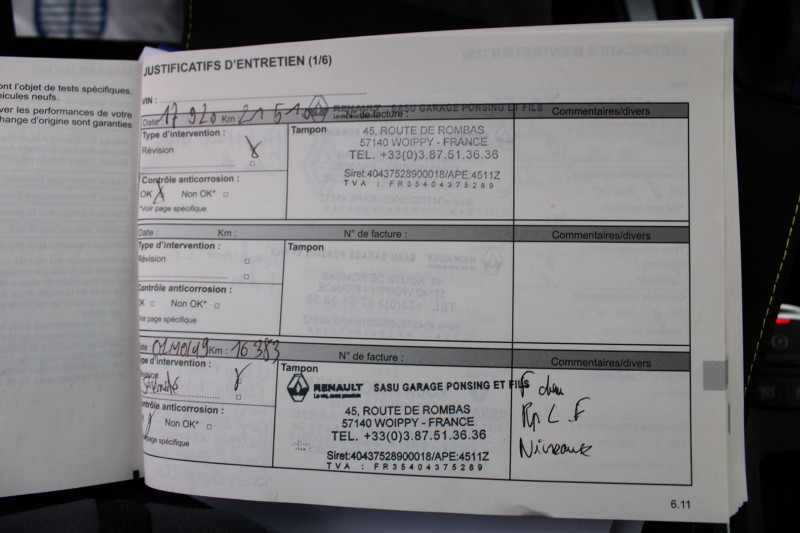 ont l'objet de tests spécifiques.
hicules neufs.
ver les performances de votre
hange d'origine sont garanties
JUSTIFICATIFS D'ENTRETIEN (1/6)
VIN :
Date: 17 9 20 Km 21 510 N° de facture : Commentaires/divers
RENAULT SASU GARAGE PONSING ET FILS
Type d'intervention :
Révision
Tampon
45, ROUTE DE ROMBAS
57140 WOIPPY - FRANCE
TEL. +33(0)3.87.51.36.36
Siret:40437528900018/APE:4511Z
TVA : FR35404375289
Contrôle anticorrosion :
OK Non OK*
*Voir page spécifique
Date : Km : N° de facture : Commentaires/divers
Type d'intervention :
Révision
Tampon
ontrôle anticorrosion :
K Non OK*
oir page spécifique
te : Km : 16 383 N° de facture : Commentaires/divers
pe d'intervention :
Tampon
RENAULT SASU GARAGE PONSING ET FILS
45, ROUTE DE ROMBAS
57140 WOIPPY - FRANCE
TEL. +33(0)3.87.51.36.36
Siret:40437528900018/APE:4511Z
TVA : FR35404375289
ntrôle anticorrosion :
Non OK*
page spécifique
Niveaux
6.11